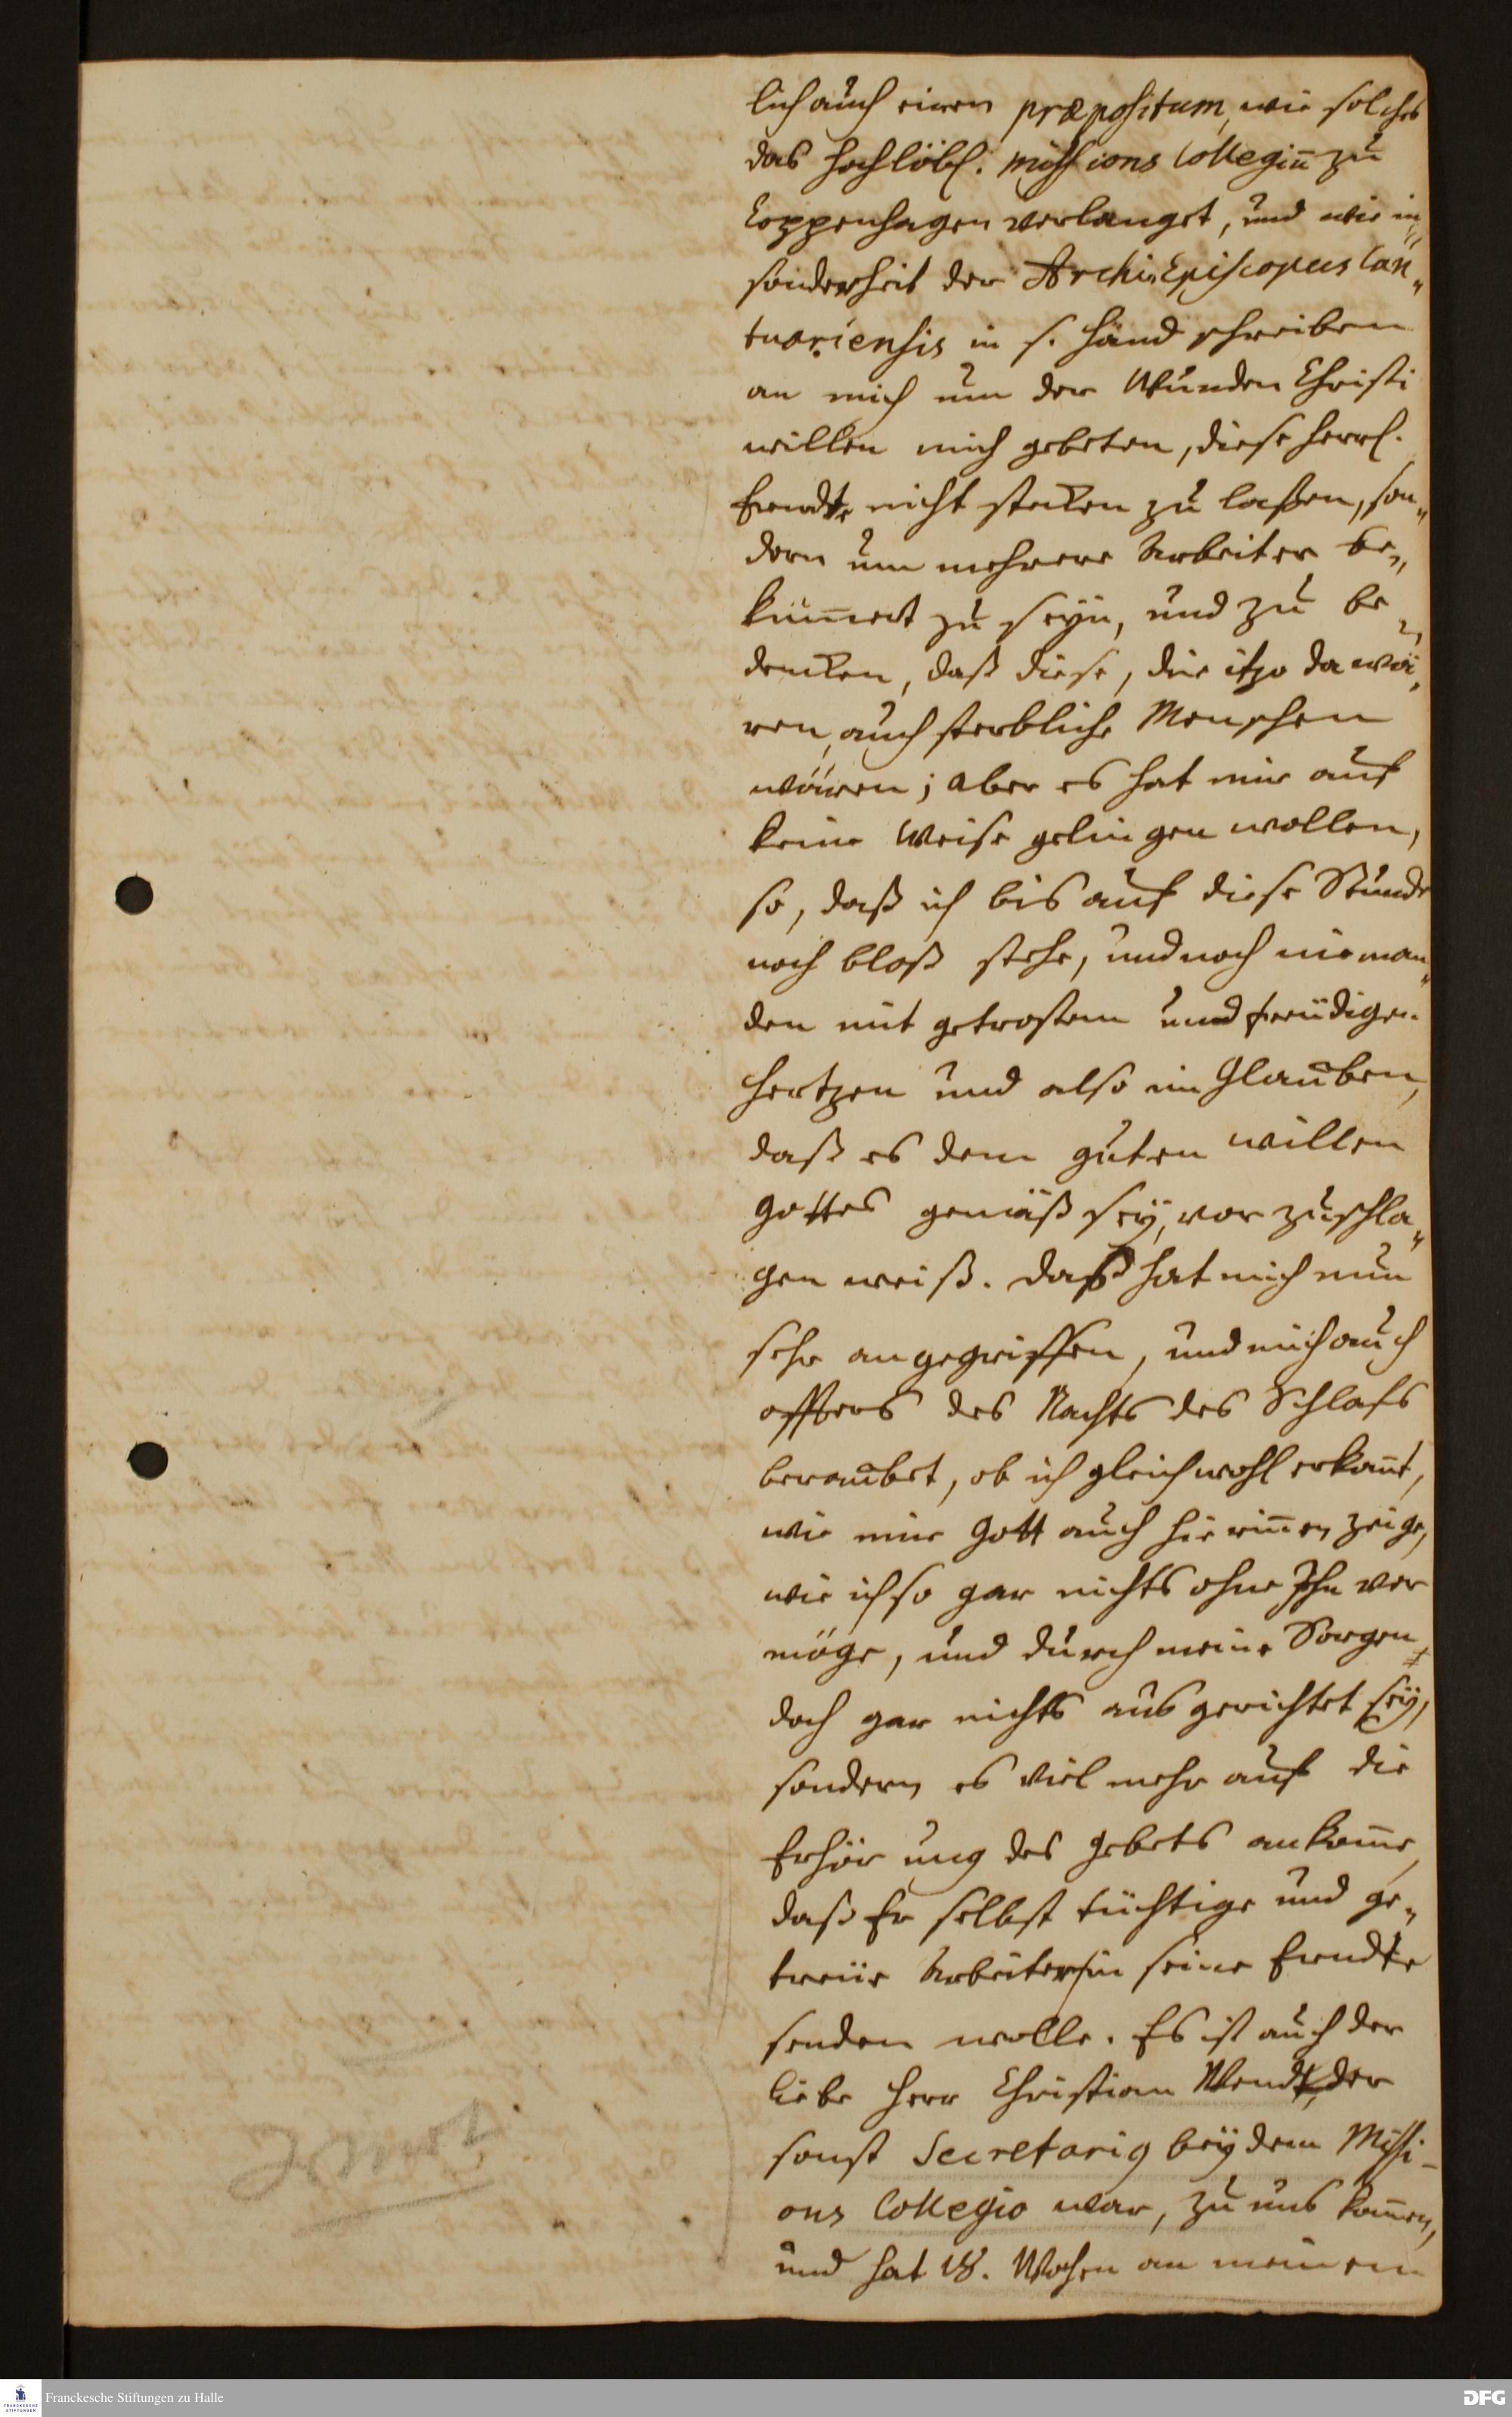 lich auch einen præpositum, wie solches
das hochlöbl. missions Collegiū zu
Coppenhagen verlanget, und wie in„
sonderheit der ArchiEpiscopus Can„
tuariensis in s. händ schreiben
an mich um der Wunden Christi
willen mich gebeten, diese herrl.
Erndte nicht stecken zu laßen, son„
dern um mehrere Arbeiter be„
kum̄ert zu seyn, und zu be„
dencken, daß diese, die itzo da wä„
ren, auch sterbliche Menschen
wären; aber es hat mir auf
keine Weise gelingen wollen,
so, daß ich bis auf diese Stunde
noch bloß stehe, und noch nieman„
den mit getrostem und freüdigen
Hertzen und also im Glauben,
daß es dem guten willen
Gottes gemäß sey, vor zuschla„
gen weiß. Daß hat mich nun
sehr angegriffen, und mich auch
öffters des Nachts des Schlafs
beraubet, ob ich gleich wohl erkan̄t,
wie mir Gott auch hierin̄en zeige,
wie ich so gar nichts ohne Ihn ver
möge, und durch meine Sorgen
doch gar nichts ausgerichtet sey,
sondern es viel mehr auf die
Erhörung des Gebets ankom̄e,
daß Er selbst tüchtige und ge„
treüe Arbeiter in seine Erndte
senden wolle. Es ist auch der
liebe Herr Christian Wendt, der
sonst Secretarig bey dem Missi-
ons Collegio war, zu uns kom̄en,
und hat 18. Wochen an meinem
Franckesche Stiftungen zu Halle
FRANCKESCHE
STIFTUNGEN
DFG